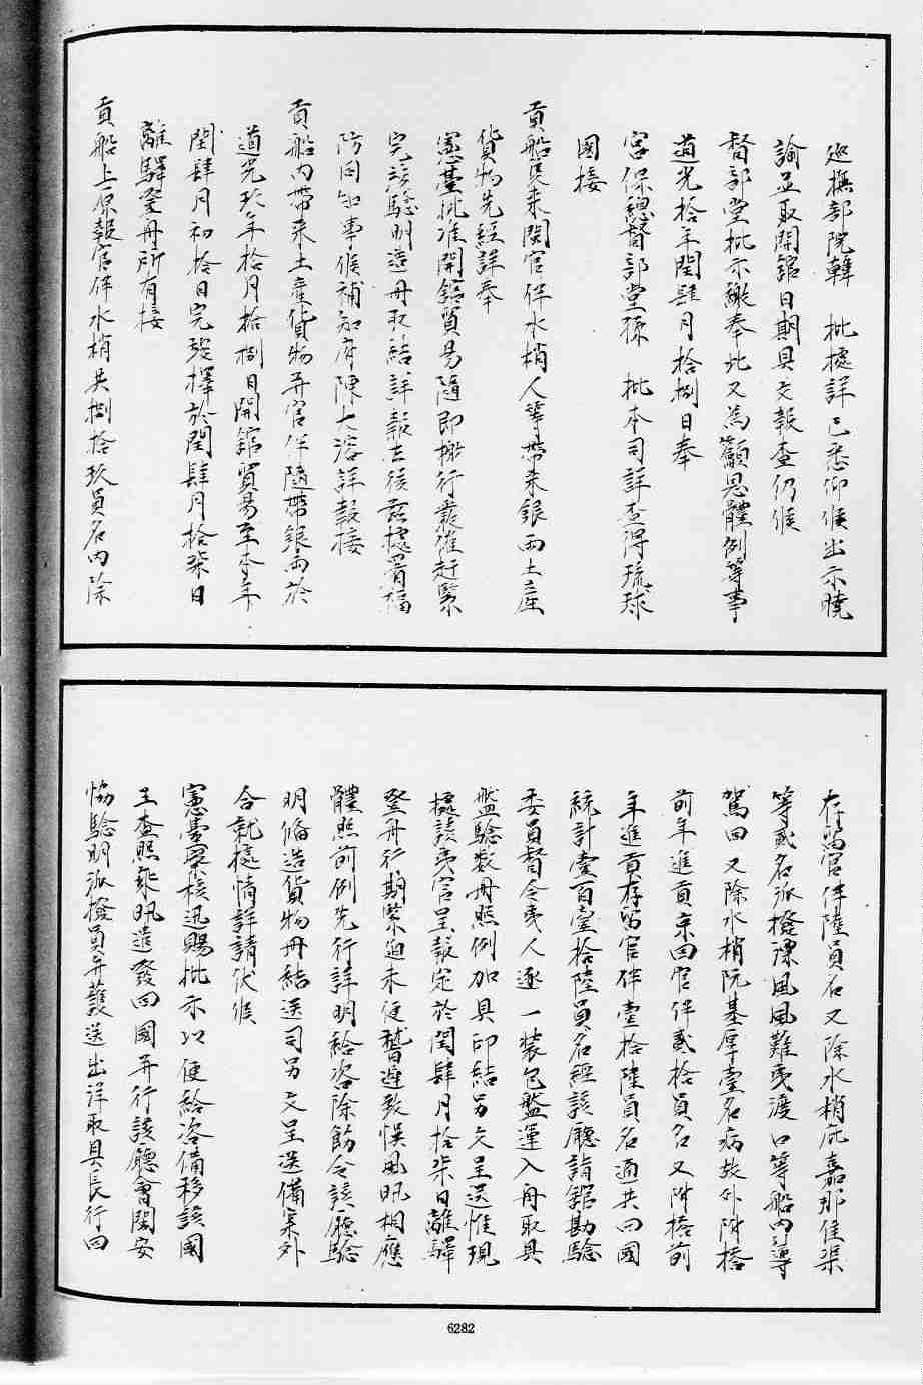 巡撫部院韓　批據詳已悉仰候出示曉
諭並取開館日期具文報查仍候
督部堂批示繳奉此又為籲恩體例等事
道光拾年閏肆月拾捌日奉
宮保總督部堂孫　批本司詳查得琉球
國接
貢船隻來閩官伴水梢人等帶來銀兩土產
貨物先經詳奉
憲臺批准開館貿易隨即撤行嚴催赶緊
完竣驗明造冊取結詳報去後茲據署福
防同知事候補知府陳大溶詳報接
貢船內帶來土產貨物并官伴隨帶銀兩於
道光玖年拾月拾捌日開館貿易至本年
閏肆月初拾日完竣擇於閏肆月拾柒日
離驛登舟所有接
貢船上原報官伴水梢共捌拾玖員名內除
存留官伴陸員名又除水梢 嘉那佳渠
等貳名派撥漂風風難夷渡口等船內導
駕回又除水梢阮基厚壹名病故外附搭
前年進貢京回官伴貳拾員名又附搭前
年進貢存留官伴壹拾陸員名通共回國
統計壹百壹拾陸員名經該廳詣館勘驗
委員督令夷人逐一裝包盤運入舟取具
盤驗數冊照例加具印結另文呈送惟現
據該夷官呈報定於閏肆月拾柒日離驛
登舟行期緊迫未便稽遲致悞風汛相應
體照前例先行詳明給咨除飭令該廳驗
明備造貨物冊結送司另文呈送備案外
合就據情詳請伏候
憲臺察核迅賜批示以便給咨備移該國
王查照乘汛遣發回國并行該廳會閩安
協驗明派撥員弁護送出洋取具長行回
6282